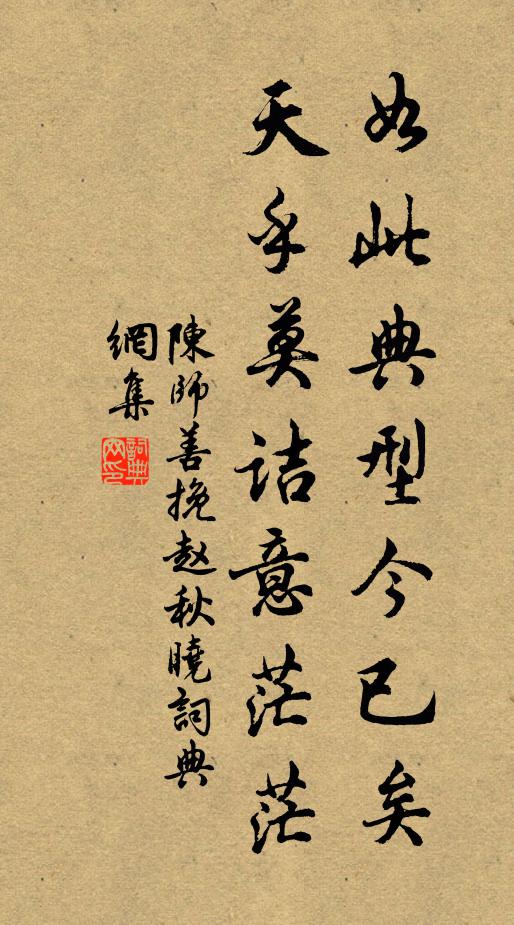 如此典型今已矣
天乎莫詰意茫茫
陳師善挽赵秋曉詞典
網集
詞典
网印